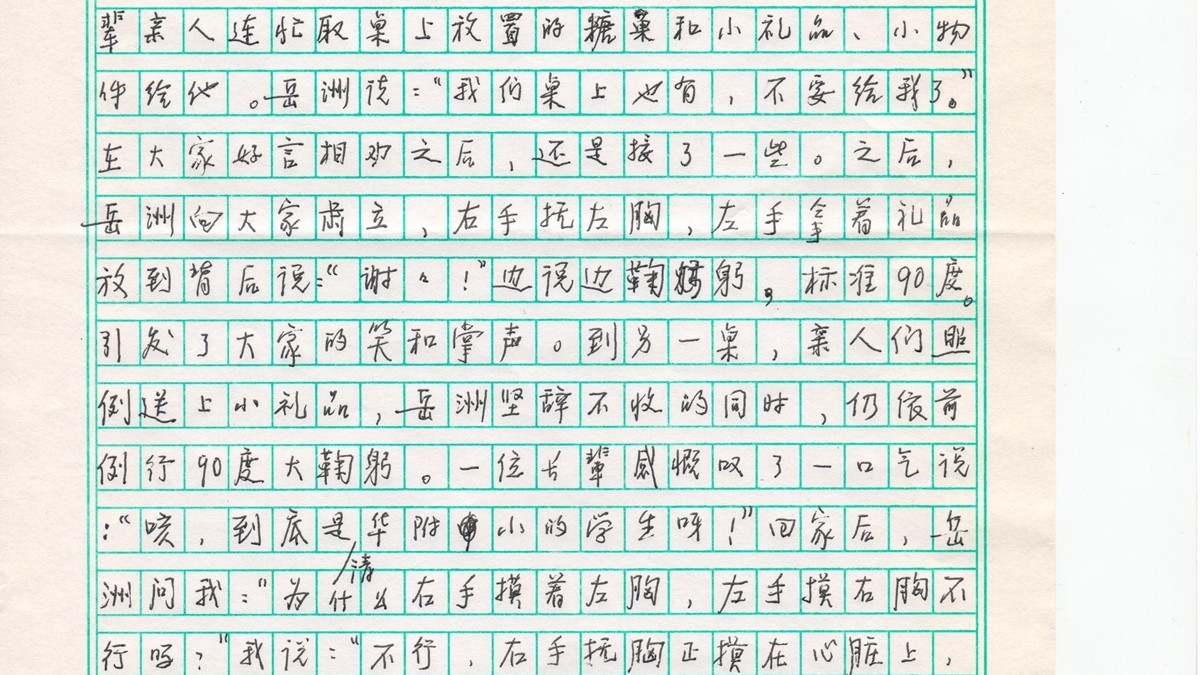 辈亲人连忙取桌上放置的糖菓和小礼品、小物
件给他。岳洲说:“我们桌上也有,不要给我了。”
在大家好言相劝之后,还是接了一些。之后,
岳洲向大家肃立,右手抚左胸,左手拿着礼品
放到背后说:“谢々!”边说边鞠躬,标准90度。
引发了大家的笑和掌声。到另一桌,亲人们照
例送上小礼品,岳洲坚辞不收的同时,仍依前
例行90度大鞠躬。一位长辈感慨叹了一口气说
:“咳,到底是清华附小的学生呀!”回家后,岳
洲问我:“为什么右手摸着左胸,左手摸右胸不
行吗?”我说:“不行,右手抚胸正摸在心脏上,